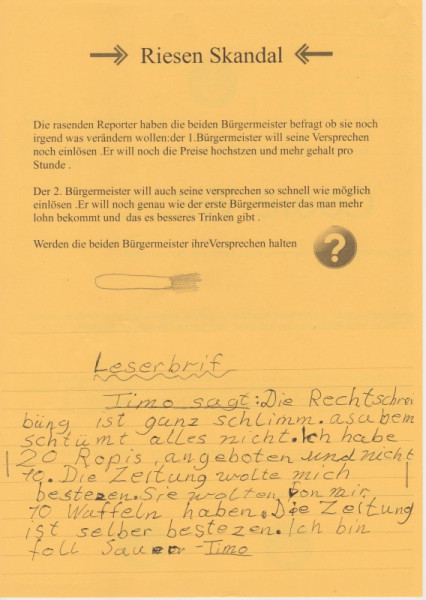 Riesen Skandal
Die rasenden Reporter haben die beiden Bürgermeister befragt ob sie noch
irgend was verändern wollen:der 1.Bürgermeister will seine Versprechen
noch einlösen .Er will noch die Preise hochstzen und mehr gehalt pro
Stunde .
Der 2. Bürgermeister will auch seine versprechen so schnell wie möglich
einlösen .Er will noch genau wie der erste Bürgermeister das man mehr
lohn bekommt und das es besseres Trinken gibt .
Werden die beiden Bürgermeister ihreVersprechen halten
?
Leserbrif
Timo sagt:Die Rechtschrei
büng ist ganz schlimm.asabem
schtümt alles nicht.Ich habe
20 Ropis angeboten und nicht
10. Die Zeitung wolte mich
bestezen.Sie wolten fon mir
10 Waffeln haben.Die Zeitung
ist selber bestezen.Ich bin
foll Sauer -Timo